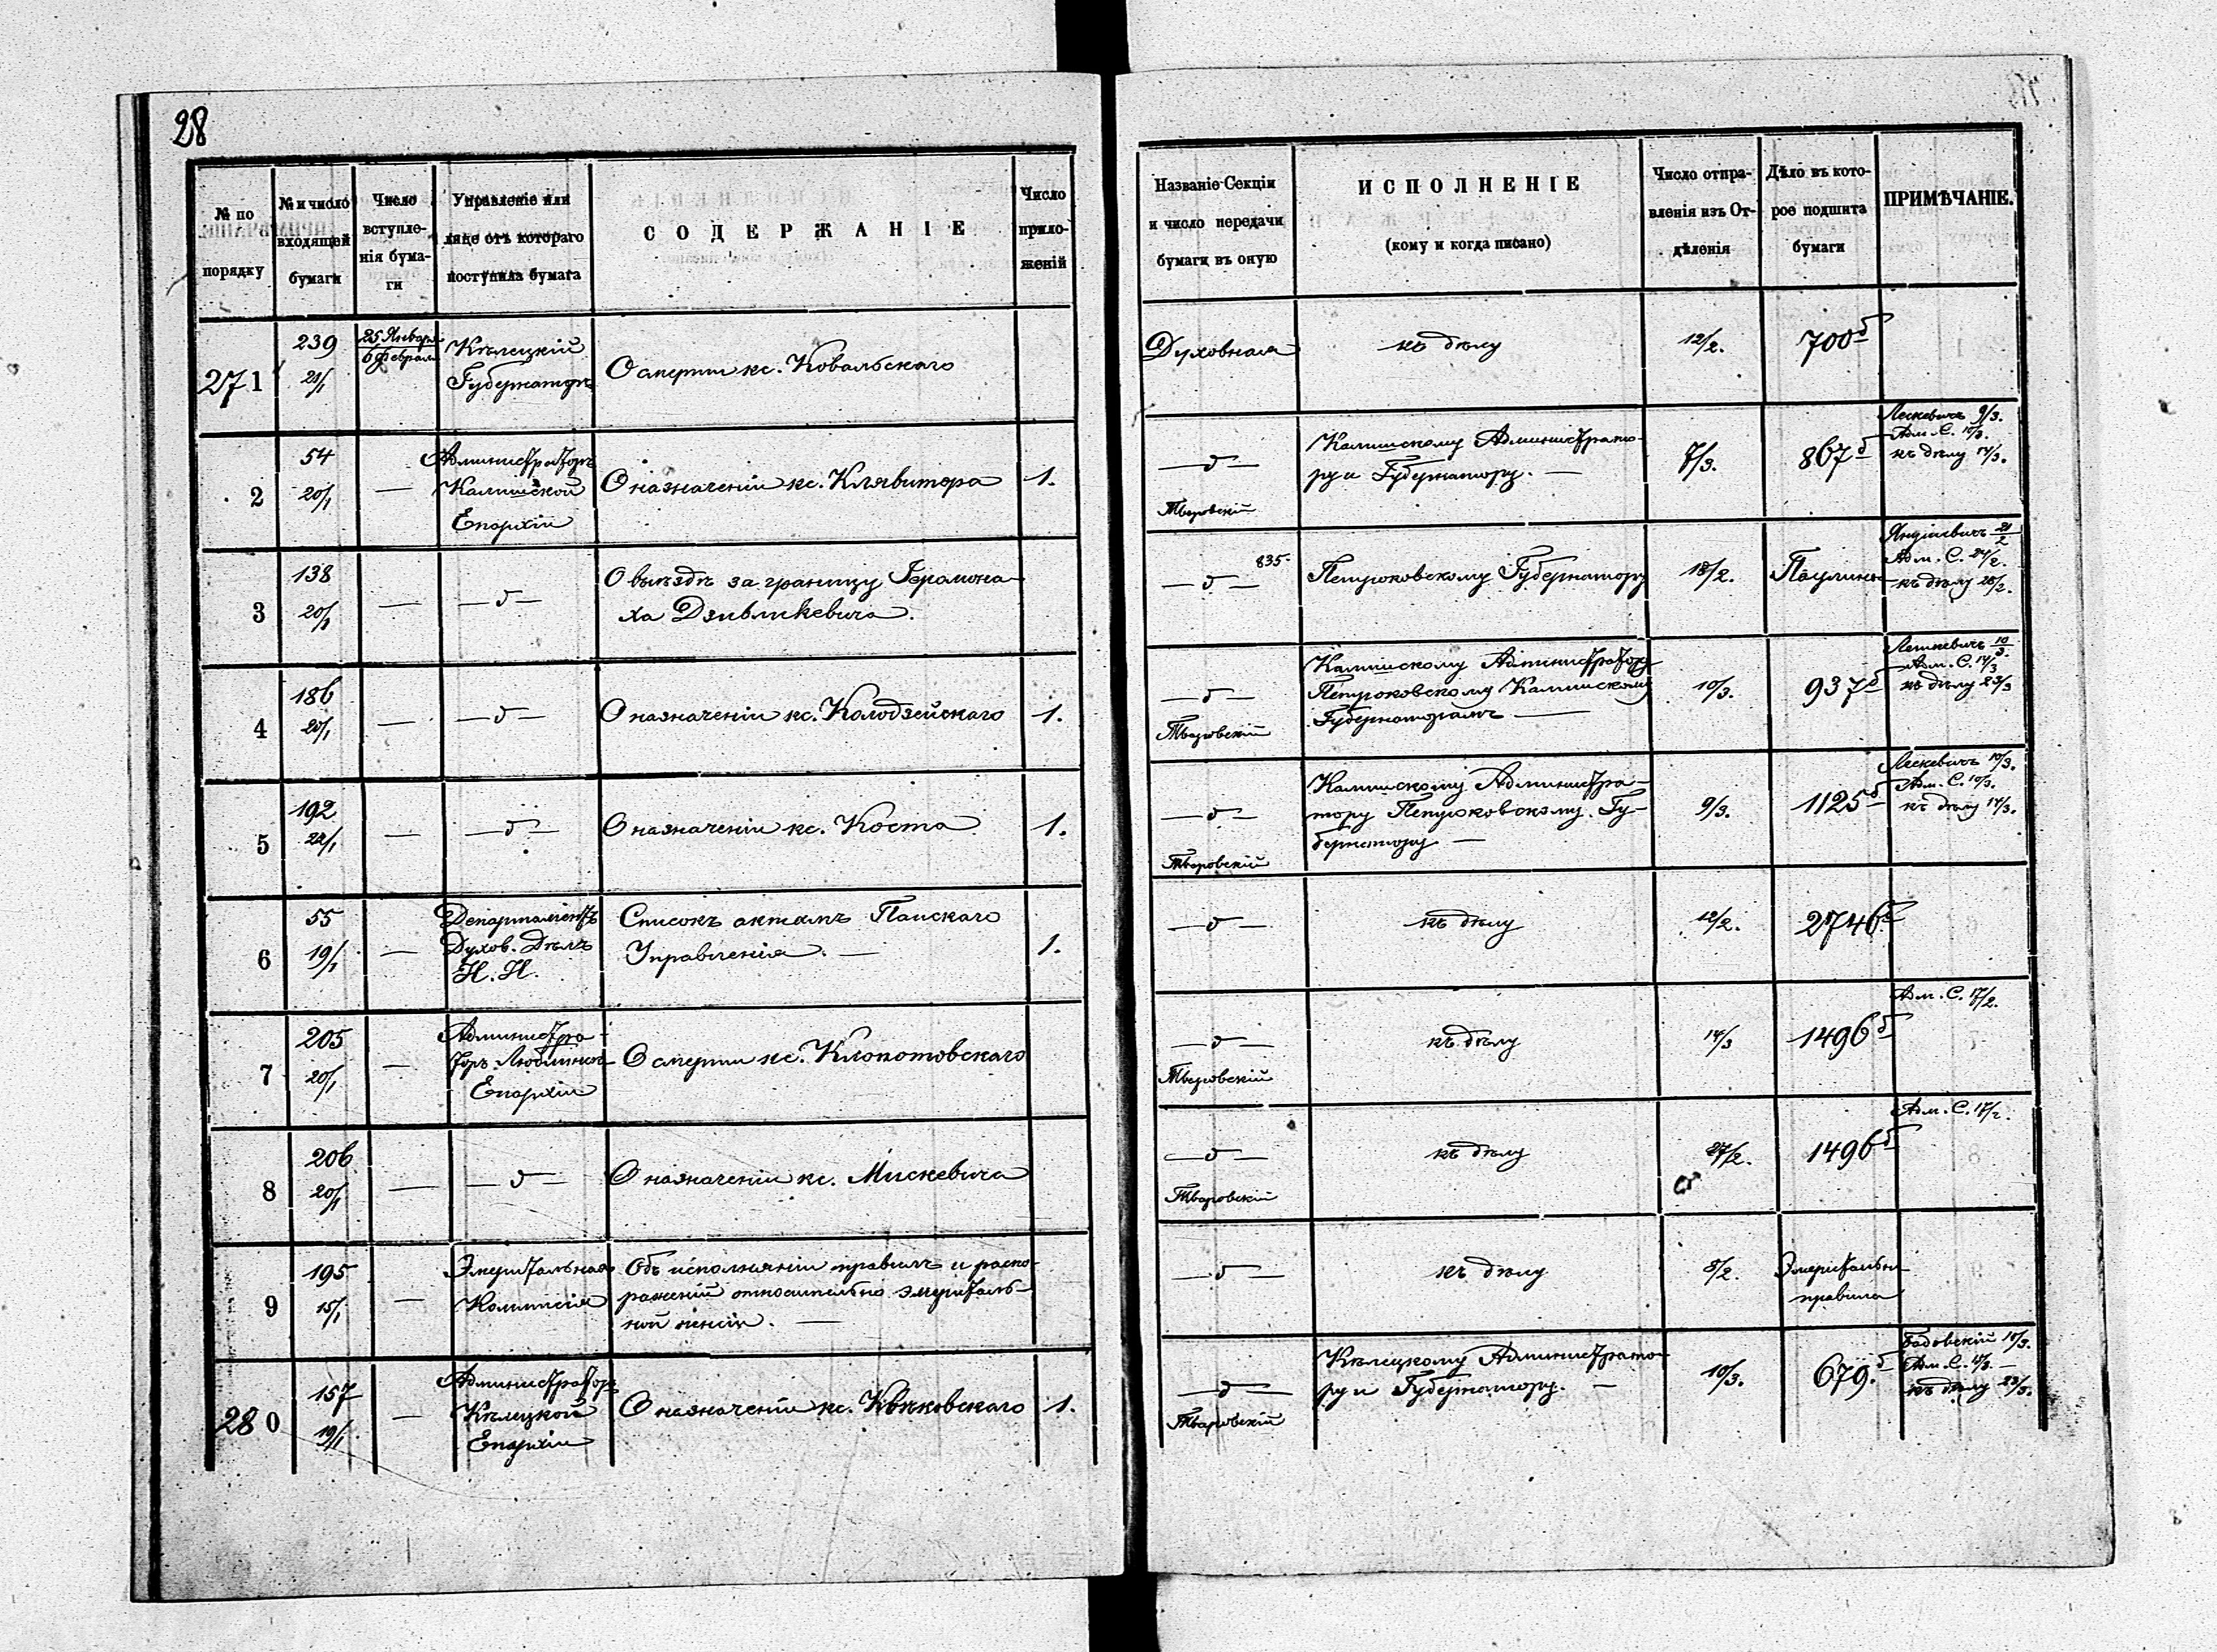 28
№ по порядку
№ и число входящей бумаги
Число вступле-
нія бума-
ги
Управленіе или
лице отъ котораго
поступила бумага
СОДЕРЖАНІЕ
Число
прило-
женій
Названіе Секціи
и число передачи
бумаги въ оную
ИСПОЛНЕНІЕ
(кому и когда писано)
Число отпра-
вленія изъ От-
дѣленія
Дѣло въ кото-
рое подшита
бумаги
ПРИМѢЧАНІЕ.
271
239
21/1
25 Января
6 Февраля
Кѣлецкій
Губернаторъ
О смерти кс. Ковальскаго
Духовная
къ дѣлу
12/2.
700 б
2
54
20/1
—
Администраторъ
Калишской
Епархіи
О назначеніи кс. Клявитера
1.
— d —
Тваровскій
Калишскому Администрато-
ру и Губернатору. —
7/3.
867 б
Лескевичъ 9/3.
Адм. С. 10/3.
къ дѣлу 14/3.
3
138
20/1
—
— d —
О выѣздѣ за границу Іеромона-
ха Дзивликевича.
835.
— d —
Петроковскому Губернатору
18/2.
Паулины
21/2
Адм. С. 24/2.
къ дѣлу 28/2.
4
186
20/1
—
— d —
О назначеніи кс. Колодзейскаго
1.
— d —
Тваровскій
Калишскому Администратору
Петроковскому Калишскому
Губернаторамъ —
10/3.
937 б
10/3.
Адм. С. 14/3
къ дѣлу 23/3
5
192
22/1
—
— d —
О назначеніи кс. Коста
1.
— d —
Тваровскій
Калишскому Администра-
тору Петроковскому Гу-
бернатору —
9/3.
1125 б
Лескевичъ 10/3.
Адм. С. 10/3.
къ дѣлу 14/3.
6
55
19/1
—
Департаментъ
Духов. Дѣлъ
И. И.
Списокъ актамъ Папскаго
Управленія. —
1.
— d —
къ дѣлу
12/2.
2746 б
7
205
20/1
—
Администра-
торъ Люблинск.
Епархіи
О смерти кс. Клопотовскаго
— d —
Тваровскій
къ дѣлу
14/3
1496 б
Адм. С. 17/2.
8
206
20/1
—
— d —
О назначеніи кс. Мискевича
— d —
Тваровскій
къ дѣлу
27/2.
1496 б
Адм. С. 17/2.
9
195
15/1
—
Эмеритальная
Коммисія
Объ исполненіи правилъ и распо-
ряженій относительно эмериталь-
ной пенсіи. —
— d —
къ дѣлу
8/2.
Эмеритальн
правила
280
157
19/1
—
Администраторъ
Кѣлецкой
Епархіи
О назначеніи кс. Квѣковскаго
1.
— d —
Тваровскій
Кѣлецкому Администрато-
ру и Губернатору. —
10/3.
679. б
10/3.
Адм. С.
къ дѣлу 23/3.